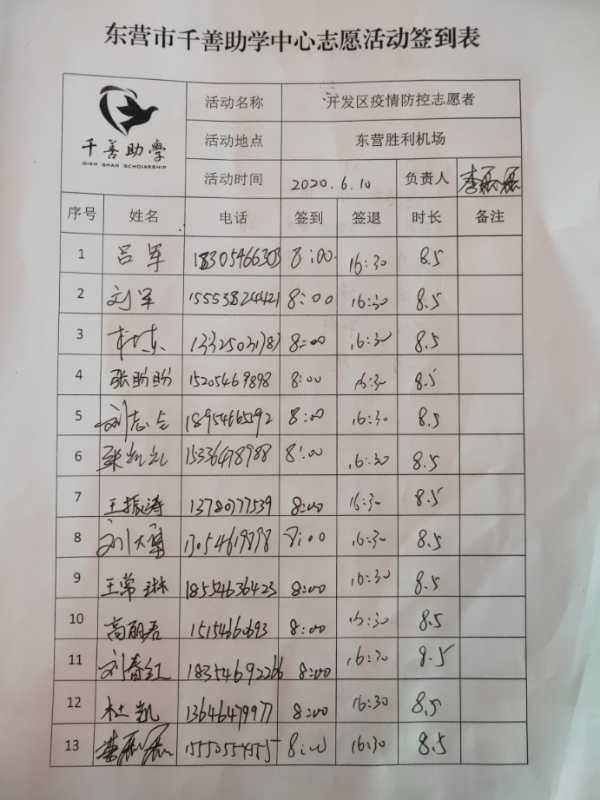 东营市千善助学中心志愿活动签到表
千善助學
QIAN SHAN SCHOLARSHIP
活动名称 开发区疫情防控志愿者
活动地点 东营胜利机场
活动时间 2020.6.10 负责人 李磊磊
序号 姓名 电话 签到 签退 时长 备注
1 吕军 18305466303 8:00 16:30 8.5
2 刘军 15553824421 8:00 16:30 8.5
3 13325031783 8:00 16:30 8.5
4 张盼盼 15205469898 8:00 16:30 8.5
5 刘志 18954665592 8:00 16:30 8.5
6 8:00 16:30 8.5
7 王振涛 13780777539 8:00 16:30 8.5
8 刘 13054619898 8:00 16:30 8.5
9 王常琳 18554636423 8:00 16:30 8.5
10 高丽君 8:00 16:30 8.5
11 刘春红 18354692266 8:00 16:30 8.5
12 杜凯 13646479977 8:00 16:30 8.5
13 李磊磊 8:00 16:30 8.5